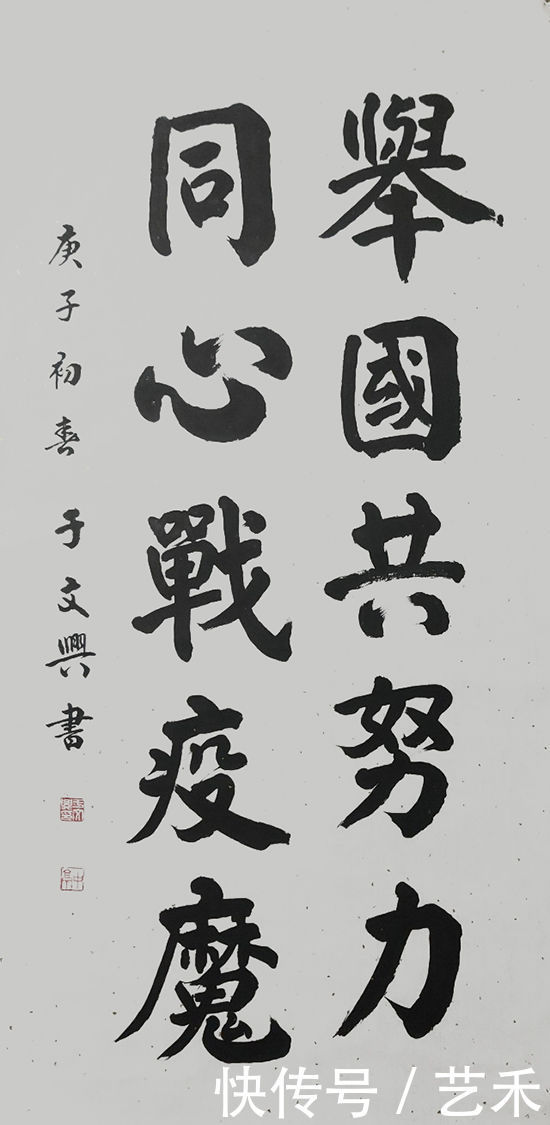 舉國共努力
同心戰疫魔
庚子初春 于文興書
快传号 / 艺禾